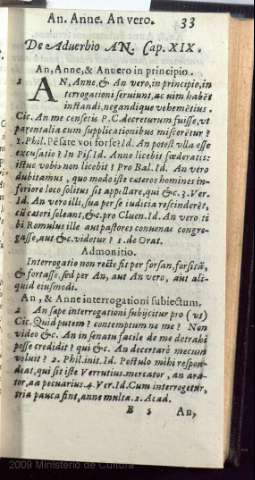 An. Anne. An vero. 33
De Aduerbio AN. Cap. XIX.
An, Anne, & An vero in principio.
1 AN, Anne, & An vero, in principio, in
terrogationi seruiunt, ac uim habẽt
instandi, negandique vehemẽtius.
Cic. An me censeris P.C. decreturum fuisse, vt
parentalia cum supplicationibus misceretur?
2. Phil. Pẽsate voi forse? Id. An potest vlla esse
excusatio? In Pis. Id. Anno licebis sœderatis:
istuc vobis non licebit? Pro Bal. Id. An vero
dubitamus, quo modo iste cateros homines in-
feriore loco solitus sit appellare, qui &c. 3. Ver.
Id. An vero illi, sua per se iudicia rescinderẽt,
cũ cateri soleant, &c. pro Cluen. Id. An vero ti
bi Romulus ille aut pastores conuenas congre-
gasse, aut &c. videtur? 1. de Orat.
Admonitio.
Interrogatio non recte fit per forsan, forsitã,
& fortasse, sed per An, aut An vero, aut ali-
quid eiusmodi.
An, & Anne interrogationi subiectum.
2 An sæpe interrogationi subijcitur pro (vt)
Cic. Quid putem? contemptum ne me? Non
video &c. An in senatu facile de me detrahi
posse credidit? qui &c. An decertare mecum
voluit? 2. Phil. init. Id. Postulo mihi respon-
deat, qui sit iste Verrutius. mercator, an ara-
tor, an pecuarius. 4. Ver. Id. Cum interrogetur,
tria pauca sint, anne multa. 2. Acad.
B 5 An,
2009 Ministerio de Cultura